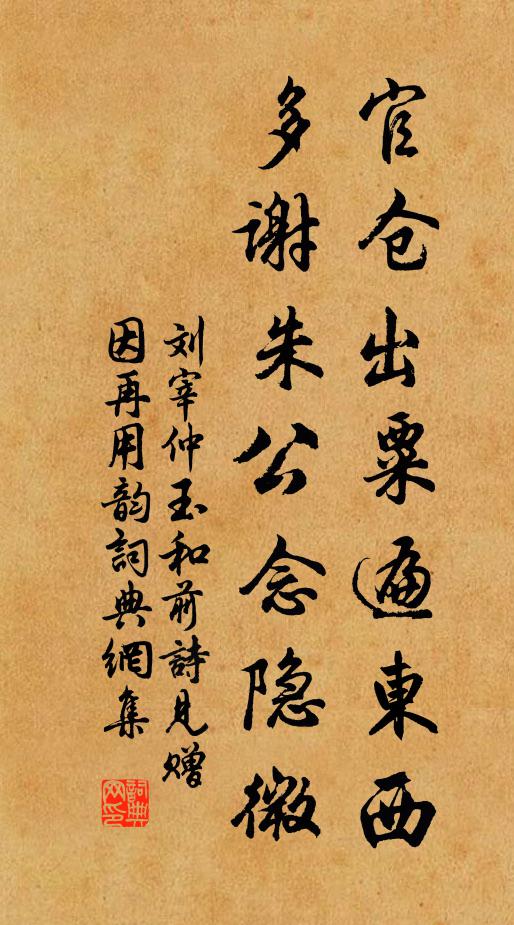 官仓出粟遍東西
多谢朱公念隐微
刘宰仲玉和前詩見赠
因再用韵詞典網集
詞典
网印